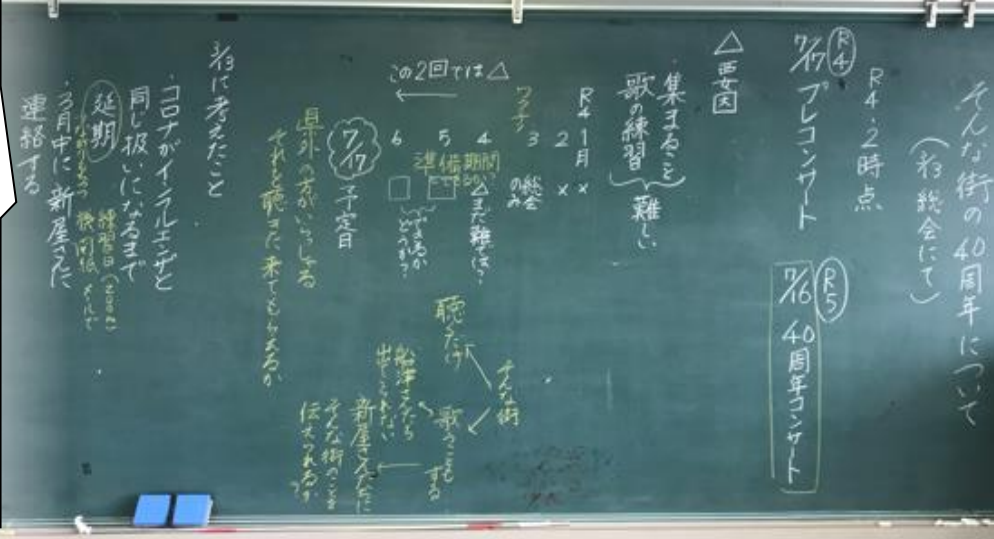 そんな街の40周年について
（R3総会にて）
R4.2時点
R4
7/17 プレコンサート
R5
7/16 40周年コンサート
△要因
・集まること
歌の練習
難しい
R4 1月 ×
2 ×
3 総会のみ
ワクチン
4 △まだ難では？
5
6
準備期間
できるかどうか？
この2回では△
7/17 予定日
県外の方がいらっしゃる
それを聴きた来てもらえるか
そんな街
聴くだけ
歌うことも
する
船津さんたち
出てこられない
新屋さんたちに
そんな街のことを
伝えられるか？
3/13に考えたこと
・コロナがインフルエンザと
同じ扱いになるまで
延期
練習日（zoom）
機関紙 メールで
・3月中に新屋さんに
連絡する